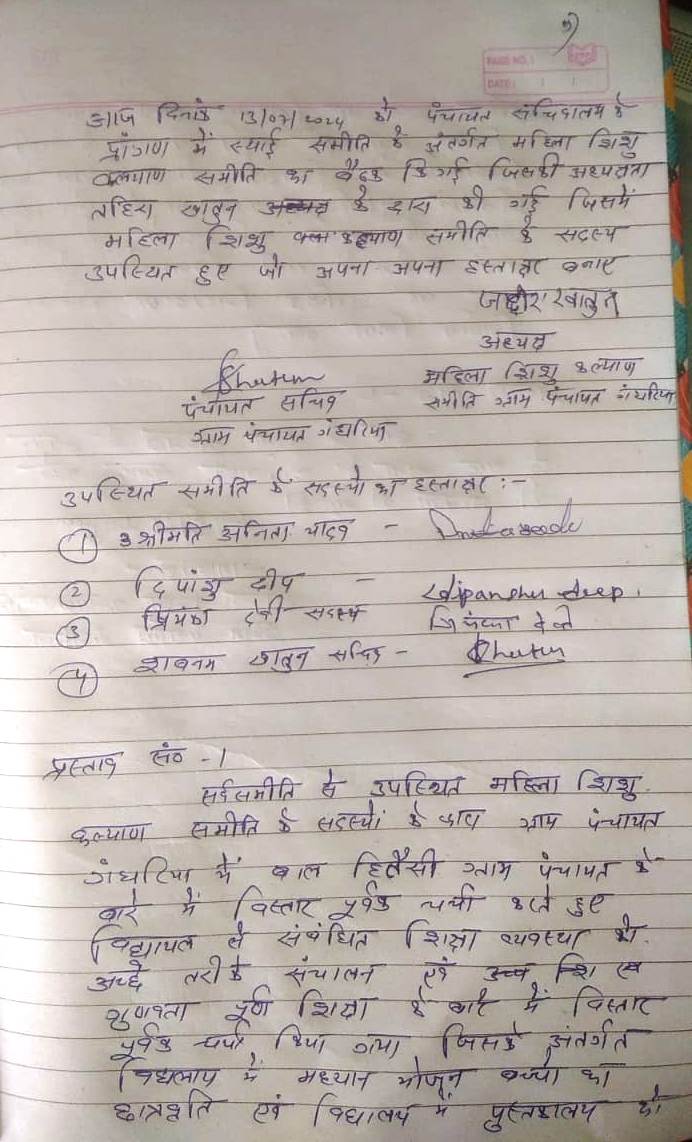 9)
PAGE NO.:
DATE:
आज दिनांक 13/07/2024 को पंचायत सचिवालय के
प्रांगण में स्थाई समीति के अंतर्गत महिला शिशु
कल्याण समीति का बैठक कि गई जिसकी अध्यक्षता
खातुन के द्वारा की गई जिसमें
महिला शिशु कल्याण समीति के सदस्य
उपस्थित हुए जो अपना अपना हस्ताक्षर बनाए
खातुन
अध्यक्ष
Khatun महिला शिशु कल्याण
पंचायत सचिव समीति ग्राम पंचायत गंधरिया
ग्राम पंचायत गंधरिया
उपस्थित समीति के सदस्यो का हस्ताक्षर :-
1 श्रीमति अनिता यादव -
2 दिपांशु दीप - dipanshu deep.
3 प्रियंका देवी सदस्य
4 शबनम खातुन सचिव - Khatun
प्रस्ताव सं० -1
सर्वसमीति से उपस्थित महिला शिशु
कल्याण समीति के सदस्यों के द्वारा ग्राम पंचायत
गंधरिया में बाल हितैसी ग्राम पंचायत के
बारे में विस्तार पूर्वक चर्चा करते हुए
विद्यायल से संबंधित शिक्षा व्यवस्था को
अच्छे तरीके संचालन एवं उच्च शि एवं
गुणवता पूर्ण शिक्षा के बारे में विस्तार
पूर्वक चर्चा किया गया जिसके अंतर्गत
विधलाय में मध्यान भोजन बच्चो का
छात्रवृति एवं विधालय में पुस्तकालय को